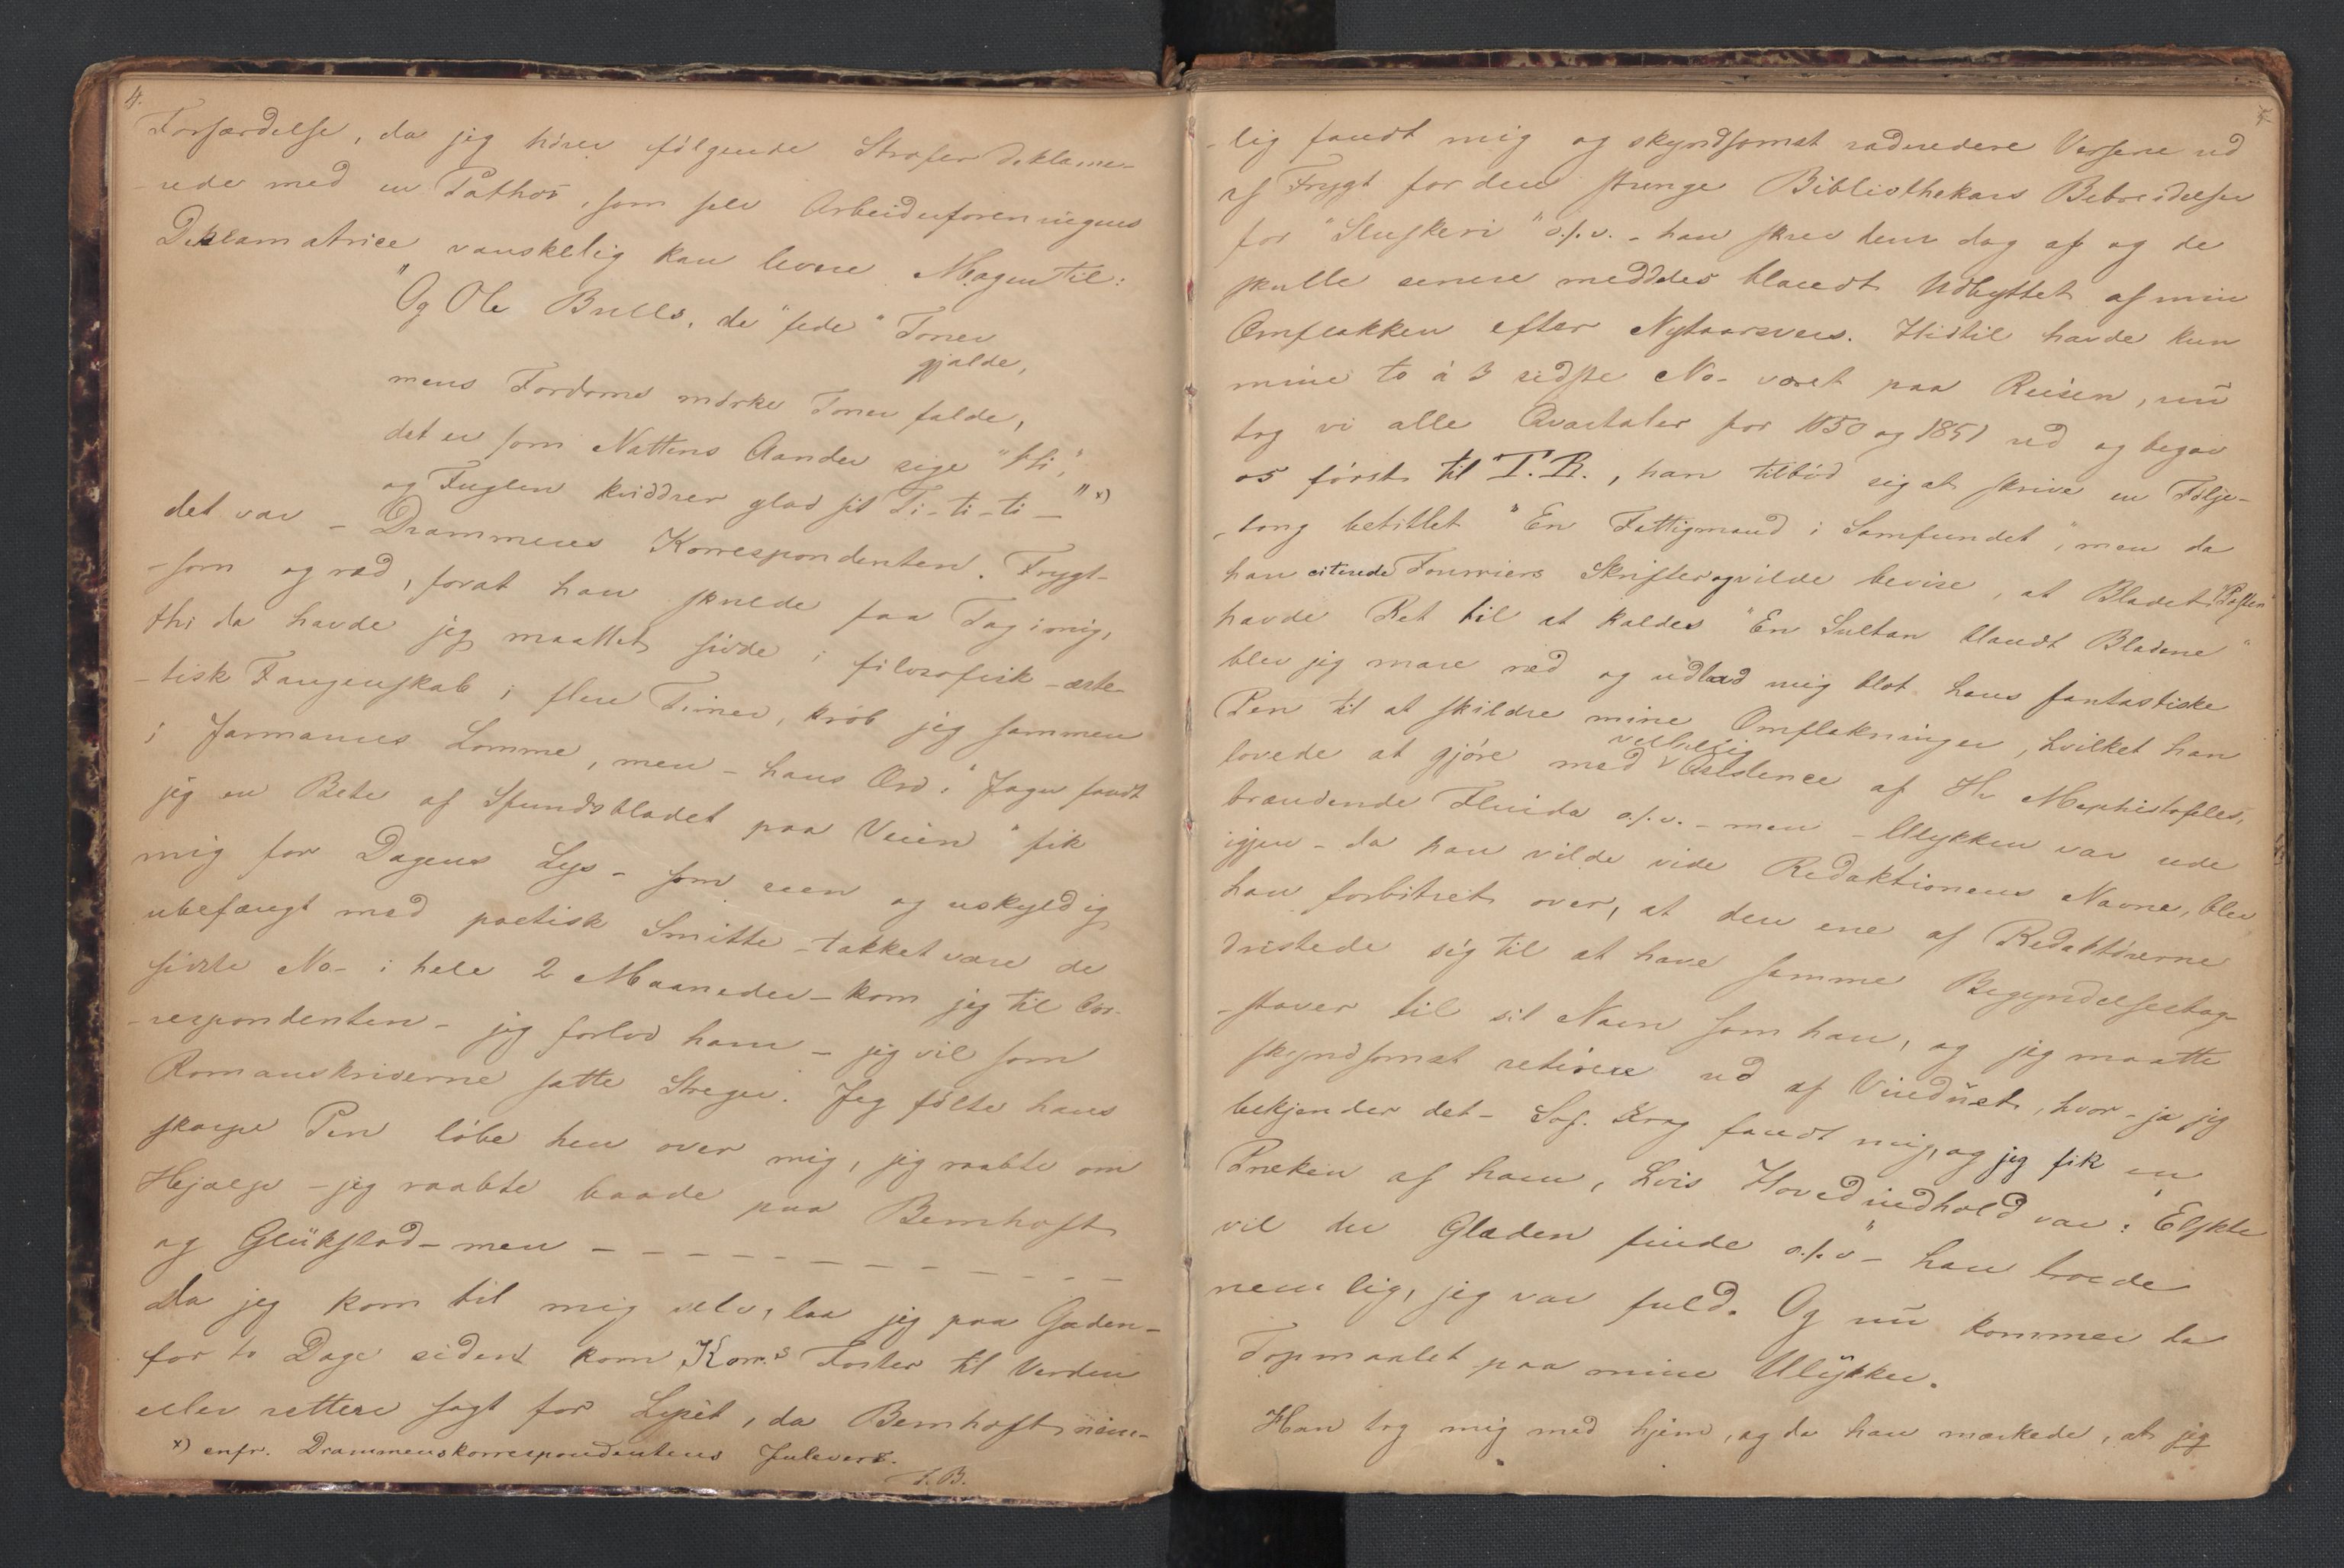 4.
Forfærdelse, da jeg hører følgende Strofer deklame-
-rede med en Pathos, som selv Arbeiderforeningens
Deklamatrice vanskelig kan levere Magen til:
"Og Ole Bulls, de "fede" Toner
gjalde,
mens Fordoms mørke Toner falde,
det er som Nattens Aander sige "Hi",
og Fuglen kviddrer glad sit Ti-ti-ti-" x)
det var - Drammens Korrespondenten. Frygt-
-som og ræd, forat han skulde faa Tag i mig,
thi da havde jeg maattet sidde i filosofisk-æste-
-tisk Fangenskab i flere Timer, krøb jeg sammen
i Jarmanns Lomme, men - hans Ord: "Jagu fandt
jeg en Bete af Sfundsbladet paa Veien" fik
mig for Dagens Lys - som reen og uskyldig
ubefængt med poetisk Smitte - takket være de
sidste No - i hele 2 Maaneder - kom jeg til Cor-
-respondenten - jeg forlod ham - jeg vil som
Romanskriverne sætte Streger. Jeg følte hans
skarpe Pen løbe hen over mig, jeg raabte om
Hjælp - jeg raabte baade paa Bernhoft
og Glükstad - men - - - - - - - - - - -
Da jeg kom til mig selv, laa jeg paa Gaden -
for to Dage siden kom Korr.s Foster til Verden
eller rettere sagt for Lyset, da Bernhoft nem-
x) cnfr. Drammenskorrespondentens Julevers.
T.B.
-lig fandt mig og skyndsomst raderede Versene ud
af Frygt for den strenge Bibliothekars Bebreidelser
for "Sluskeri" o.s.v. - han skrev dem dog af og de
skulle senere meddeles blandt Udbyttet af min
Omflakken efter Nytaarsvers. Hidtil havde kun
mine to à 3 sidste No- været paa Reisen, nu
tog vi alle Qvartaler for 1850 og 1851 ud og begav
os først til T.R., han tilbød sig at skrive en Følje-
-tong betitlet "En Fattigmand i Samfundet", men da
han citerede Fourriers Skrifter og vilde bevise, at Bladet "Posten"
havde Ret til at kaldes "En Sultan blandt Bladene"
blev jeg mare ræd og udbad mig blot hans fantastiske
Pen til at skildre mine Omflakninger, hvilket han
lovede at gjøre med velvillig Assistence af Hr Mephistofeles,
brændende Fluida o.s.v. - men - Ulykken var ude
igjen - da han vilde vide Redaktionens Navne, blev
han forbitret over, at den ene af Redaktørerne
dristede sig til at have samme Begyndelsesbog-
-staver til sit Navn som han, og jeg maatte
skyndsomst retirere ud af Vinduet, hvor - ja jeg
bekjender det - Sof. Krag fandt mig, og jeg fik en
Præken af ham, hvis Hovedindhold var: "Elskte
vil du Glæden finde o.s.v" - han troede
nemlig, jeg var fuld. Og nu kommer da
Topmaalet paa mine Ulykker.
Han tog mig med hjem, og da han mærkede, at jeg